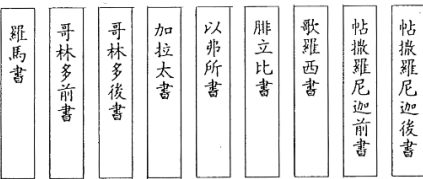 羅馬書
哥林多前書
哥林多後書
加拉太書
以弗所書
腓立比書
歌羅西書
帖撒羅尼迦前書
帖撒羅尼迦後書